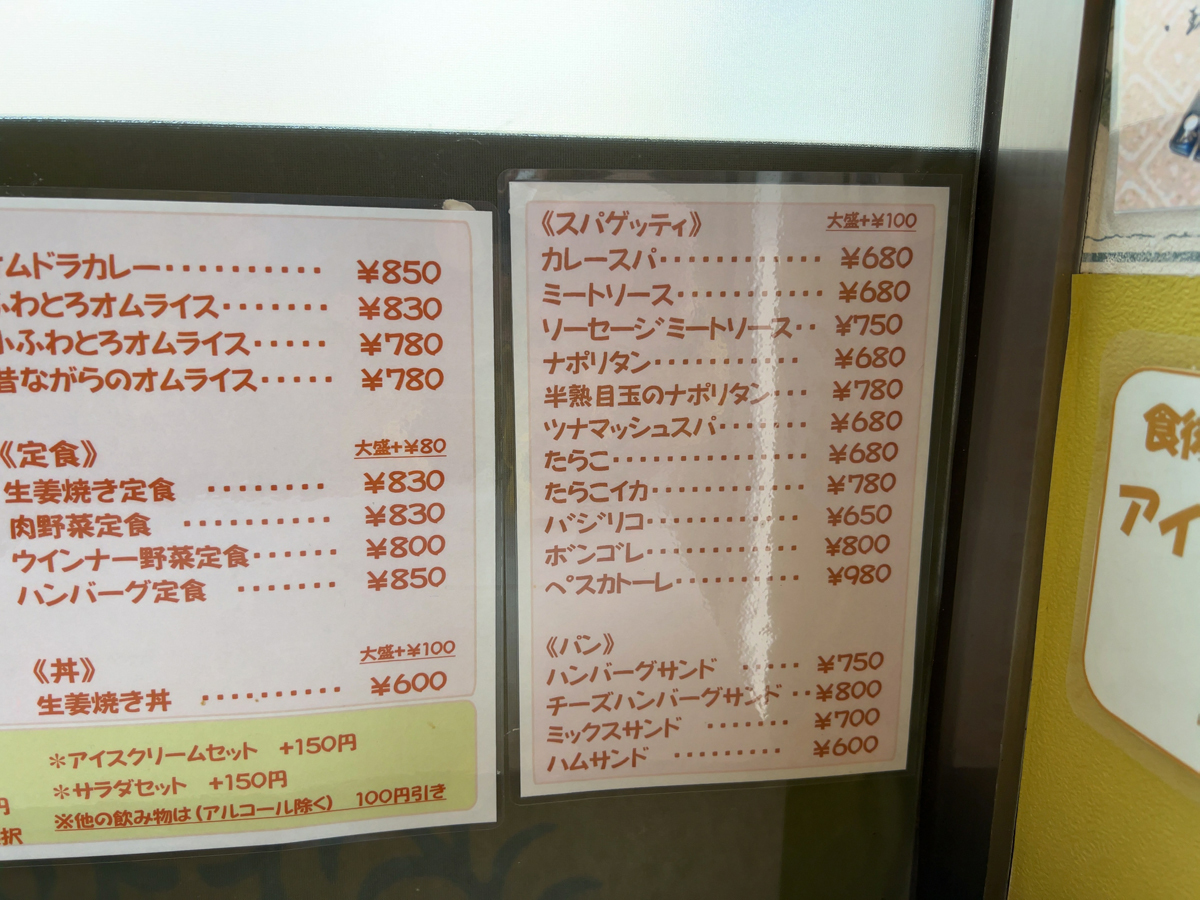 ムドラカレー・・・・・・・・・・ ¥850
ふわとろオムライス・・・・・・・ ¥830
小ふわとろオムライス・・・・・ ¥780
昔ながらのオムライス・・・・・ ¥780
《定食》 大盛+¥80
生姜焼き定食 ・・・・・・・・ ¥830
肉野菜定食 ・・・・・・・・・・ ¥830
ウインナー野菜定食・・・・・・ ¥800
ハンバーグ定食 ・・・・・・・ ¥850
《丼》 大盛+¥100
生姜焼き丼 ・・・・・・・・・・ ¥600
＊アイスクリームセット +150円
＊サラダセット +150円
円
択 ※他の飲み物は(アルコール除く) 100円引き
《スパゲッティ》 大盛+¥100
カレースパ・・・・・・・・・・・・ ¥680
ミートソース・・・・・・・・・・・ ¥680
ソーセージミートソース・・ ¥750
ナポリタン・・・・・・・・・・・ ¥680
半熟目玉のナポリタン・・・ ¥780
ツナマッシュスパ・・・・・・・ ¥680
たらこ・・・・・・・・・・・・・・ ¥680
たらこイカ・・・・・・・・・・・ ¥780
バジリコ・・・・・・・・・・・・ ¥650
ボンゴレ・・・・・・・・・・・・ ¥800
ペスカトーレ・・・・・・・・・ ¥980
《パン》
ハンバーグサンド ・・・・・ ¥750
チーズハンバーグサンド ・・ ¥800
ミックスサンド ・・・・・・・ ¥700
ハムサンド ・・・・・・・・・ ¥600
食後
アイ